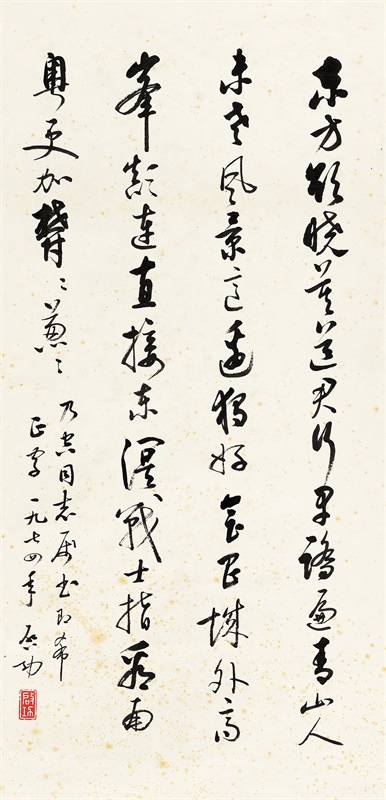 东方欲晓莫道君行早踏遍青山人
未老风景这边独好会昌城外高
峯颠连直接东溟战士指看南
粤更加欝〻葱〻
乃同志属书即希
正字 一九七四年 启功
启功